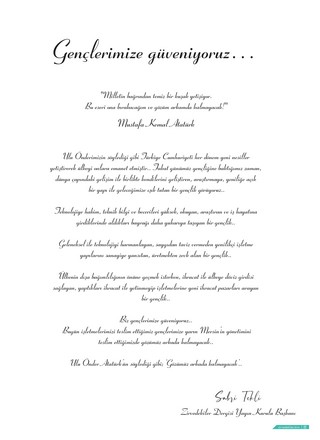 Gençlerimize güveniyoruz...
"Milletin bağrından temiz bir kuşak yetişiyor.
Bu eseri ona bırakacağım ve gözüm arkamda kalmayacak!"
Mustafa Kemal Atatürk
Ulu Önderimizin söylediği gibi Türkiye Cumhuriyeti her dönem yeni nesiller
yetiştirerek ülkeyi onlara emanet etmiştir... Fakat günümüz gençliğine baktığımız zaman,
dünya çapındaki gelişim ile birlikte kendilerini geliştiren, araştırmaya, yeniliğe açık
bir yapı ile geleceğimize ışık tutan bir gençlik görüyoruz...
Teknolojiye hakim, teknik bilgi ve becerileri yüksek, okuyan, araştıran ve iş hayatına
girdiklerinde aldıkları bayrağı daha yukarıya taşıyan bir gençlik..
Geleneksel ile teknolojiyi harmanlayan, saygıdan taviz vermeden yenilikçi işletme
yapılarını sanayiye yansıtan, üretmekten zevk alan bir gençlik..
Ülkenin dışa bağımlılığının önüne geçmek isterken, ihracat ile ülkeye döviz girdisi
sağlayan, yaptıkları ihracat ile yetinmeyip işletmelerine yeni ihracat pazarları arayan
bir gençlik..
Biz gençlerimize güveniyoruz..
Bugün işletmelerimizi teslim ettiğimiz gençlerimize yarın Mersin'in yönetimini
teslim ettiğimizde gözümüz arkada kalmayacak..
Ulu Önder Atatürk'ün söylediği gibi; 'Gözümüz arkada kalmayacak'..
Sabri Tekli
Zirvedekiler Dergisi Yayın Kurulu Başkanı